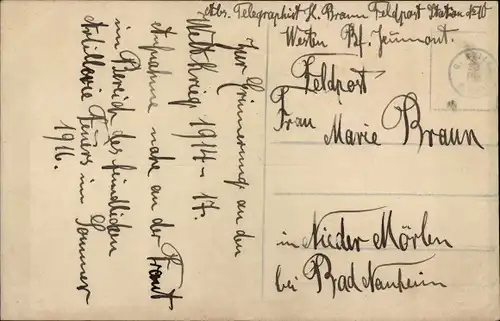 Abs. Telegraphist K. Braun Feldpost Station No
Westen Bf. Jeumont.
Feldpost
Frau
Marie Braun
in Nieder Mörlen
bei Bad Nauheim
Zur Erinnerung an den
Weltkrieg 1914-17.
Aufnahme nahe an der Front
im Bereich des feindlichen
Artillerie Feuers im Sommer
1916.